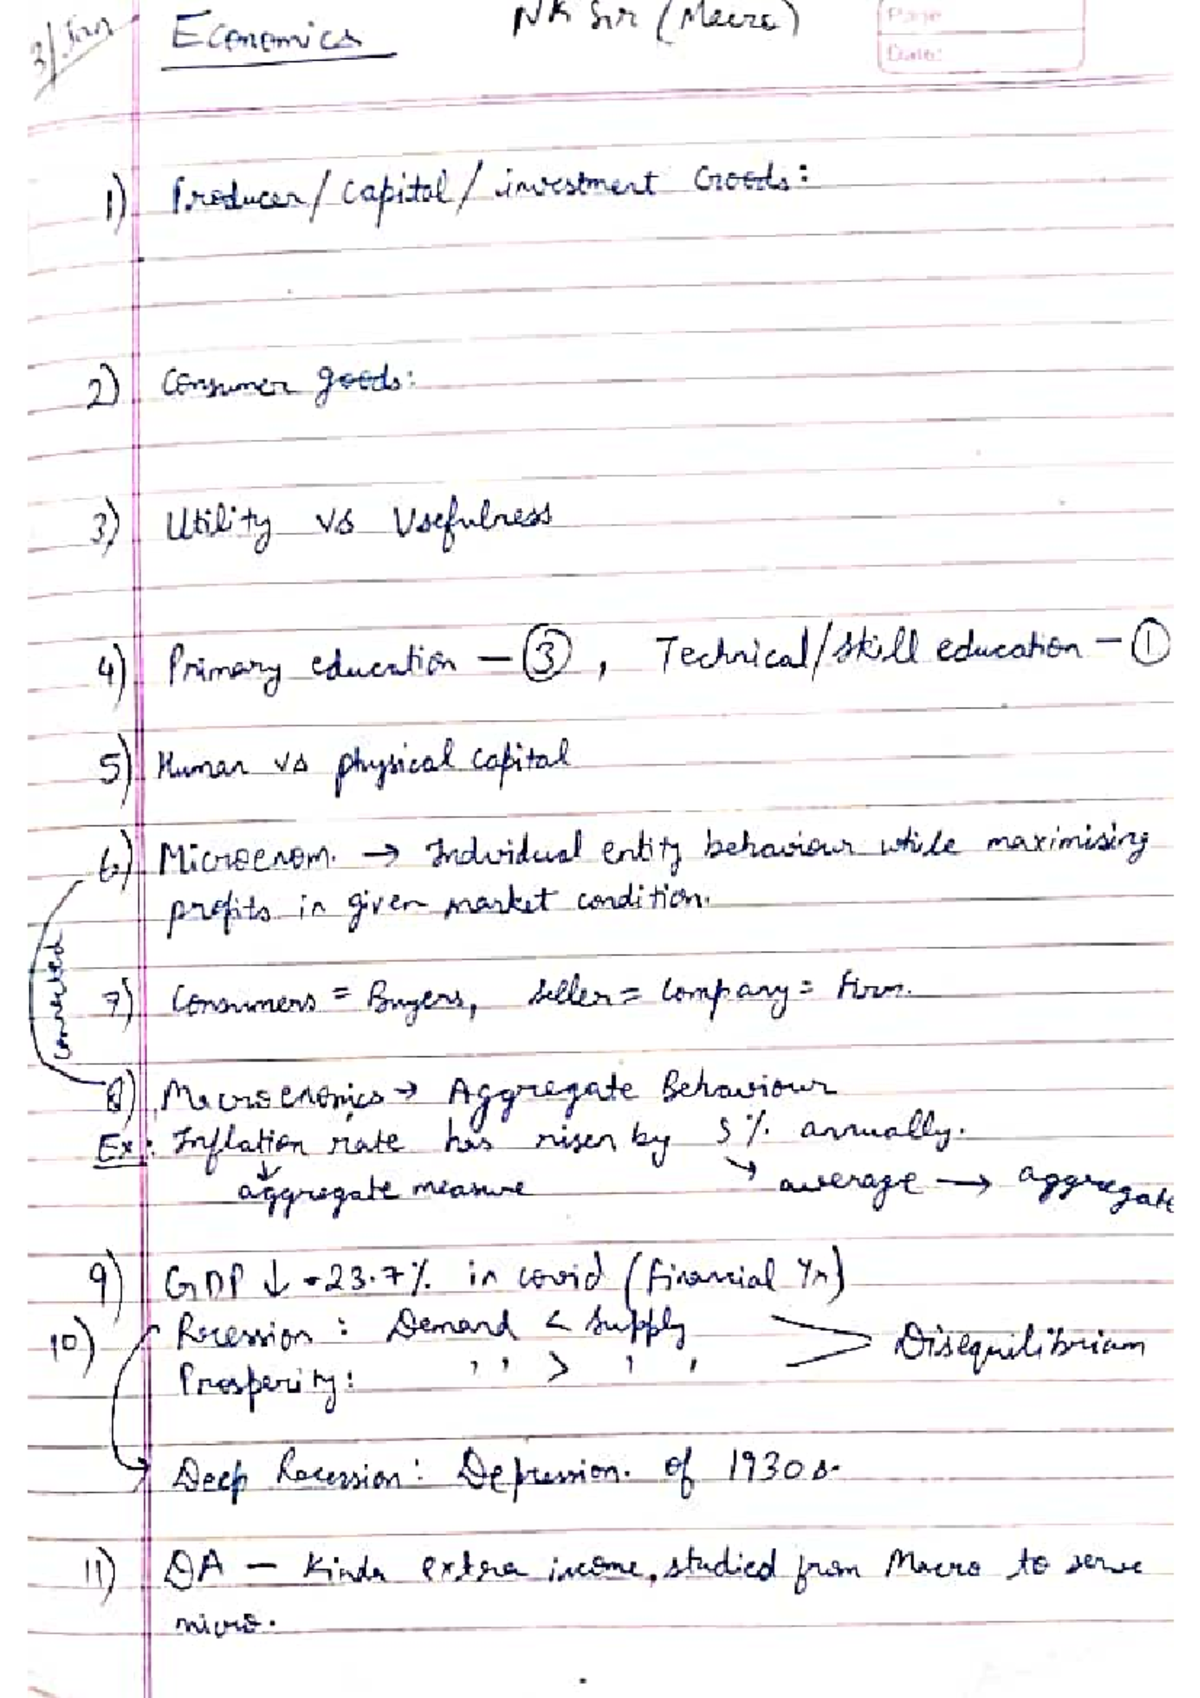 3/Jan
Economics
NK Sir (Macro)
Page
Date:
1) Producer/Capital/investment Goods:
2) Consumer goods:
3) Utility vs Usefulness
4) Primary education – ③, Technical/skill education – ①
5) Human vs physical capital
6) Microenom. → Individual entity behaviour while maximising
profits in given market condition.
connected
7) Consumers = Buyers, Seller = Company = Firm.
8) Macroenomics → Aggregate Behaviour
Ex: Inflation rate has risen by 5% annually.
↓ aggregate measure → average → aggregate
9) GDP ↓ -23.7% in covid (financial Yr)
10) Recession : Demand < Supply
Prosperity: ,, > ,, Disequilibrium
Deep Recession: Depression. of 1930s.
11) DA – Kinda extra income, studied from Macro to serve
micro.